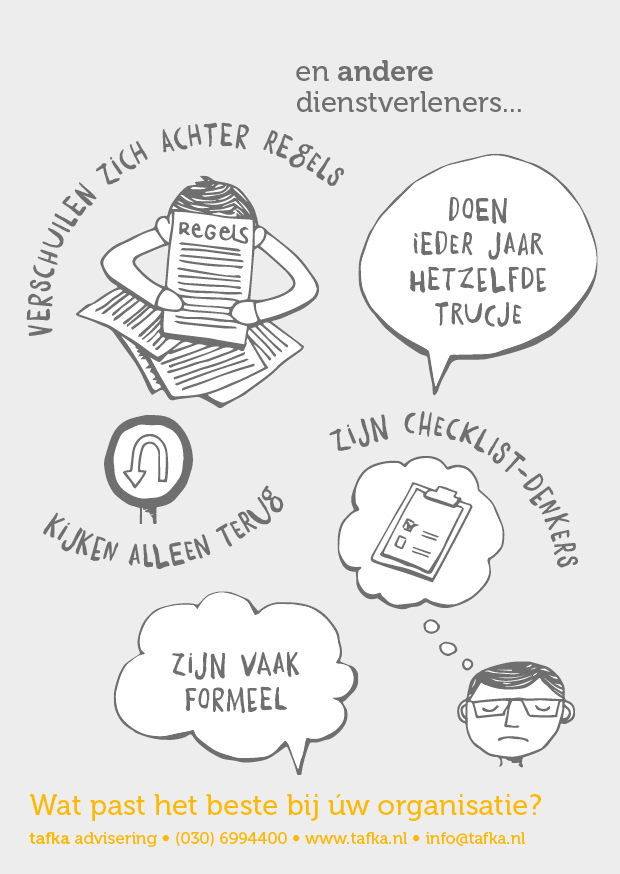 en andere
dienstverleners...
VERSCHUILEN ZICH ACHTER REGELS
REGELS
DOEN
IEDER JAAR
HETZELFDE
TRUCJE
ZIJN CHECKLIST-DENKERS
KIJKEN ALLEEN TERUG
ZIJN VAAK
FORMEEL
Wat past het beste bij úw organisatie?
tafka advisering • (030) 6994400 • www.tafka.nl • info@tafka.nl